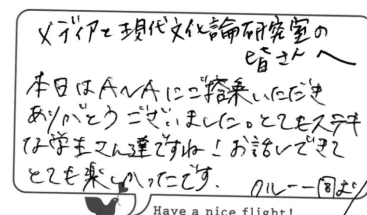 メディアと現代文化論研究室の
皆さんへ
本日はANAにご搭乗いただき
ありがとうございました。とてもステキ
な学生さん達ですね！お話しできて
とても楽しかったです.
クルー一同より
Have a nice flight!